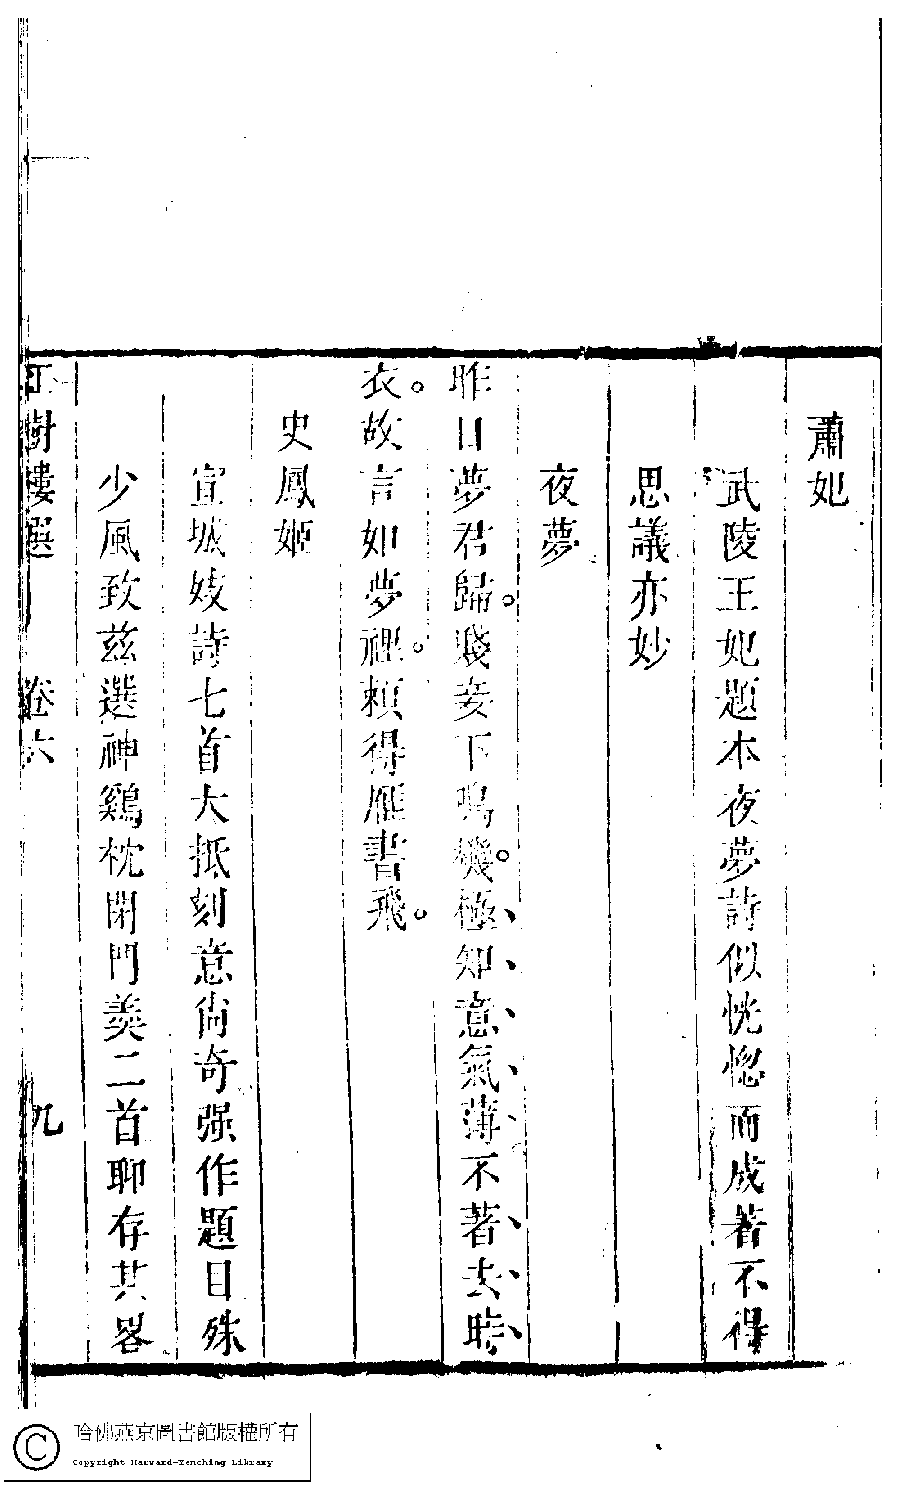 蕭妃
武陵王妃題本夜夢詩似恍惚而成著不得
思議亦妙
夜夢
昨日夢君歸。賤妾下鳴機。極知意氣薄不著去時
衣。故言如夢裡。賴得雁書飛。
史鳳姬
宣城妓詩七首大抵刻意尙奇强作題目殊
少風致玆選神鷄枕閉門羮二首聊存其畧
紅樹樓選 卷六 九
哈佛燕京圖書館版權所有
Copyright Harvard-Yenching Library